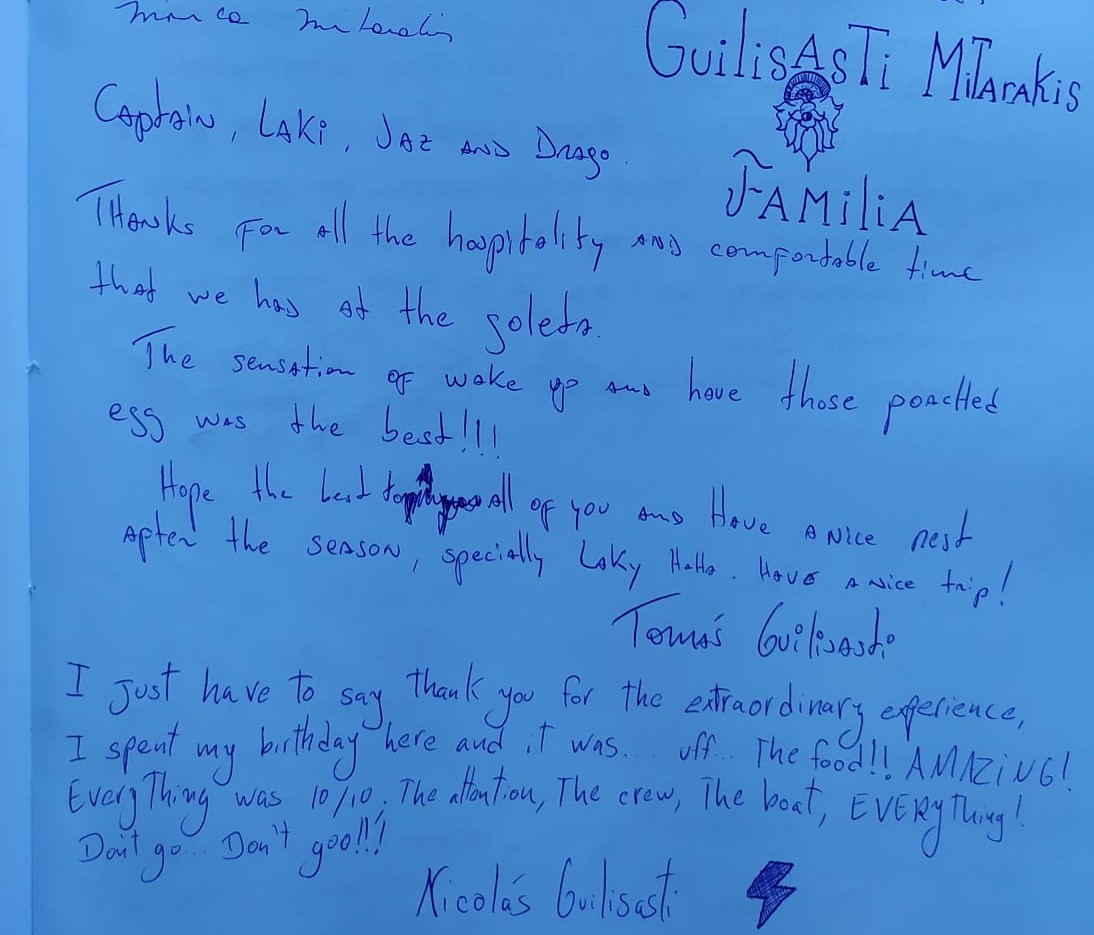 Guilisasti Mitarakis
Familia
Captain, Laki, Jaz and Drago.
Thanks for all the hospitality and comfortable time
that we had at the goleta.
The sensation of wake up and have those poached
egg was the best!!!
Hope the best to all of you and Have a nice rest
after the season, specially Laky HaHa. Have a nice trip!
Tomás Guilisasti
I just have to say thank you for the extraordinary experience,
I spent my birthday here and it was.... uff... The food!! AMAZiNG!
EveryThing was 10/10. The attention, The crew, The boat, EVERyThing!
Don't go... Don't goo!!!
Nicolás Guilisasti